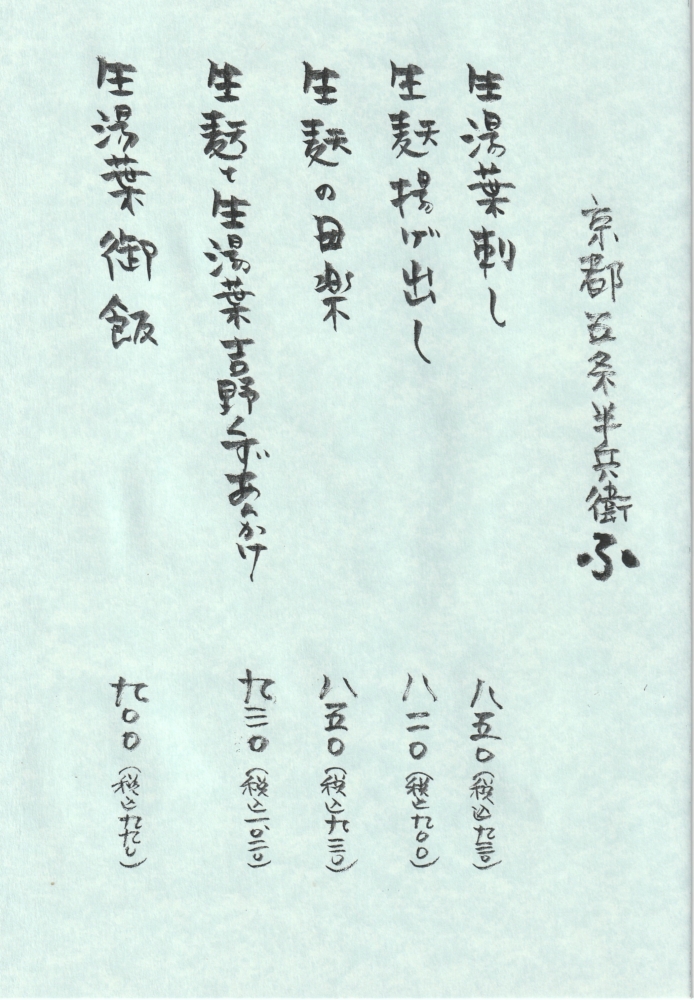 京都五条半兵衛ふ
生湯葉刺し 八五〇(税込九三〇)
生麩揚げ出し 八二〇(税込九〇〇)
生麩の田楽 八五〇(税込九三〇)
生麩と生湯葉吉野くずあんかけ 九三〇(税込一、〇二〇)
生湯葉御飯 九〇〇(税込九九〇)